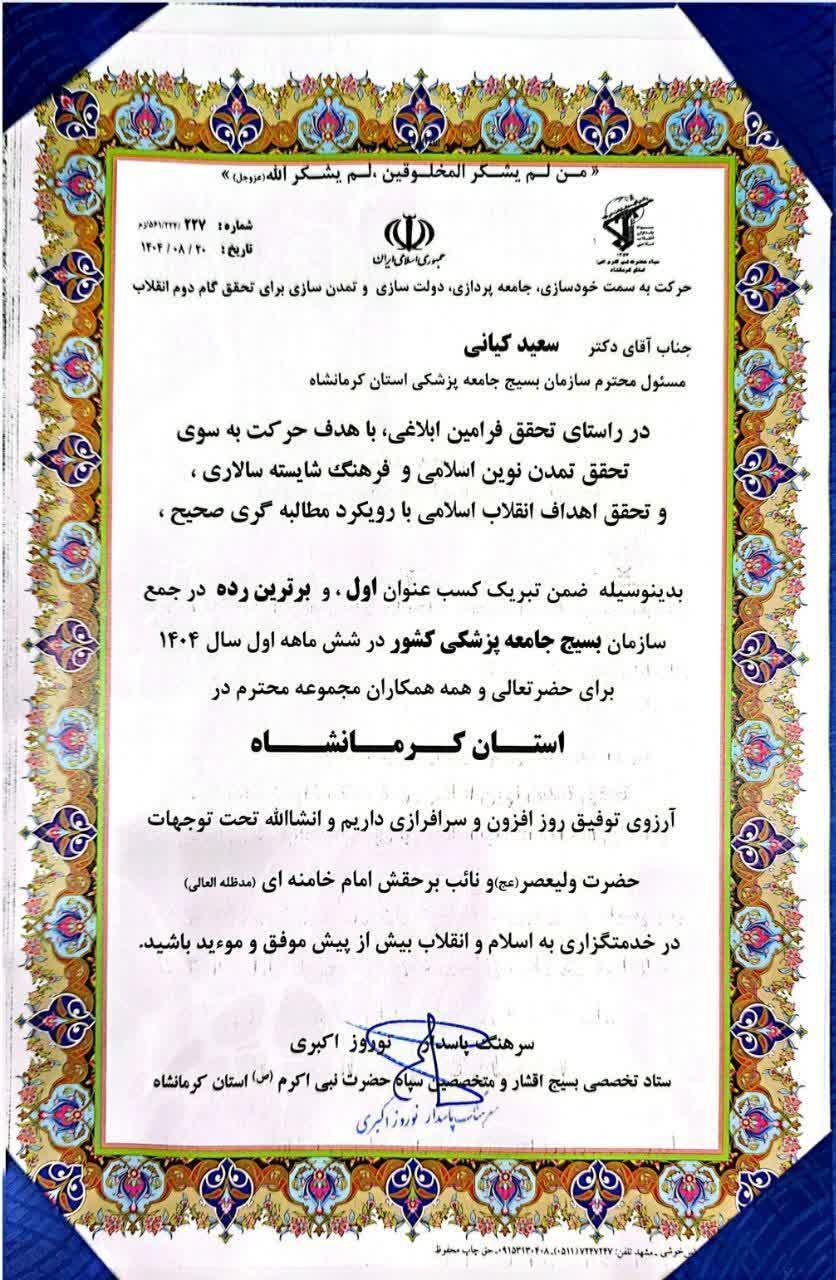 « من لم یشکر المخلوقین ،لم یشکر الله(عزوجل) »
جمهوری اسلامی ایران
شماره: ۲۲۷
تاریخ: ۱۴۰۴/۰۸/۲۰
حرکت به سمت خودسازی، جامعه پردازی، دولت سازی و تمدن سازی برای تحقق گام دوم انقلاب
جناب آقای دکتر سعید کیانی
مسئول محترم سازمان بسیج جامعه پزشکی استان کرمانشاه
در راستای تحقق فرامین ابلاغی، با هدف حرکت به سوی
تحقق تمدن نوین اسلامی و فرهنگ شایسته سالاری ،
و تحقق اهداف انقلاب اسلامی با رویکرد مطالبه گری صحیح ،
بدینوسیله ضمن تبریک کسب عنوان اول ، و برترین رده در جمع
سازمان بسیج جامعه پزشکی کشور در شش ماهه اول سال ۱۴۰۴
برای حضرتعالی و همه همکاران مجموعه محترم در
استان کرمانشاه
آرزوی توفیق روز افزون و سرافرازی داریم و انشاالله تحت توجهات
حضرت ولیعصر(عج)و نائب برحقش امام خامنه ای (مدظله العالی)
در خدمتگزاری به اسلام و انقلاب بیش از پیش موفق و موءید باشید.
سرهنگ پاسدار نوروز اکبری
ستاد تخصصی بسیج اقشار و متخصصین سپاه حضرت نبی اکرم (ص) استان کرمانشاه
سرهنگ پاسدار نوروز اکبری
خوشی ـ مشهد تلفن: ۷۲۴۷۲۴۷ (۰۵۱۱)ـ ۰۹۱۵۳۱۳۰۴۰۸ـ حق چاپ محفوظ